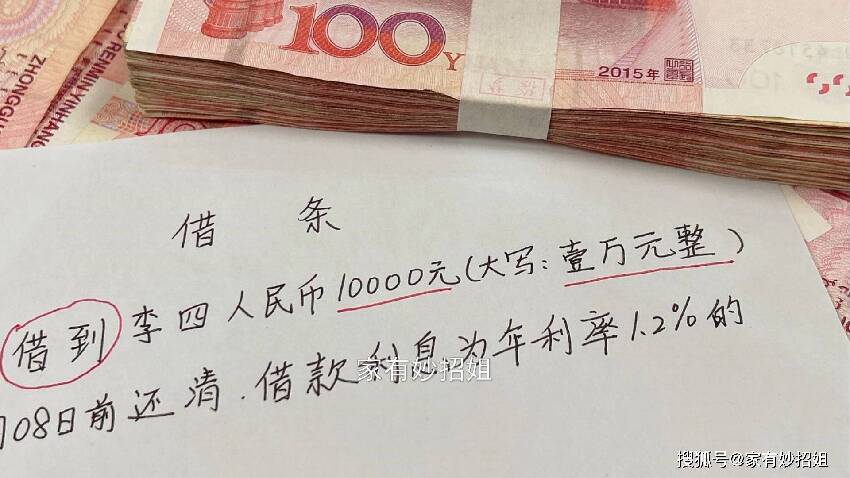 100
2015年
借 条
借到李四人民币10000元(大写:壹万元整)
08日前还清.借款利息为年利率1.2%的
家有妙招姐
搜狐号@家有妙招姐